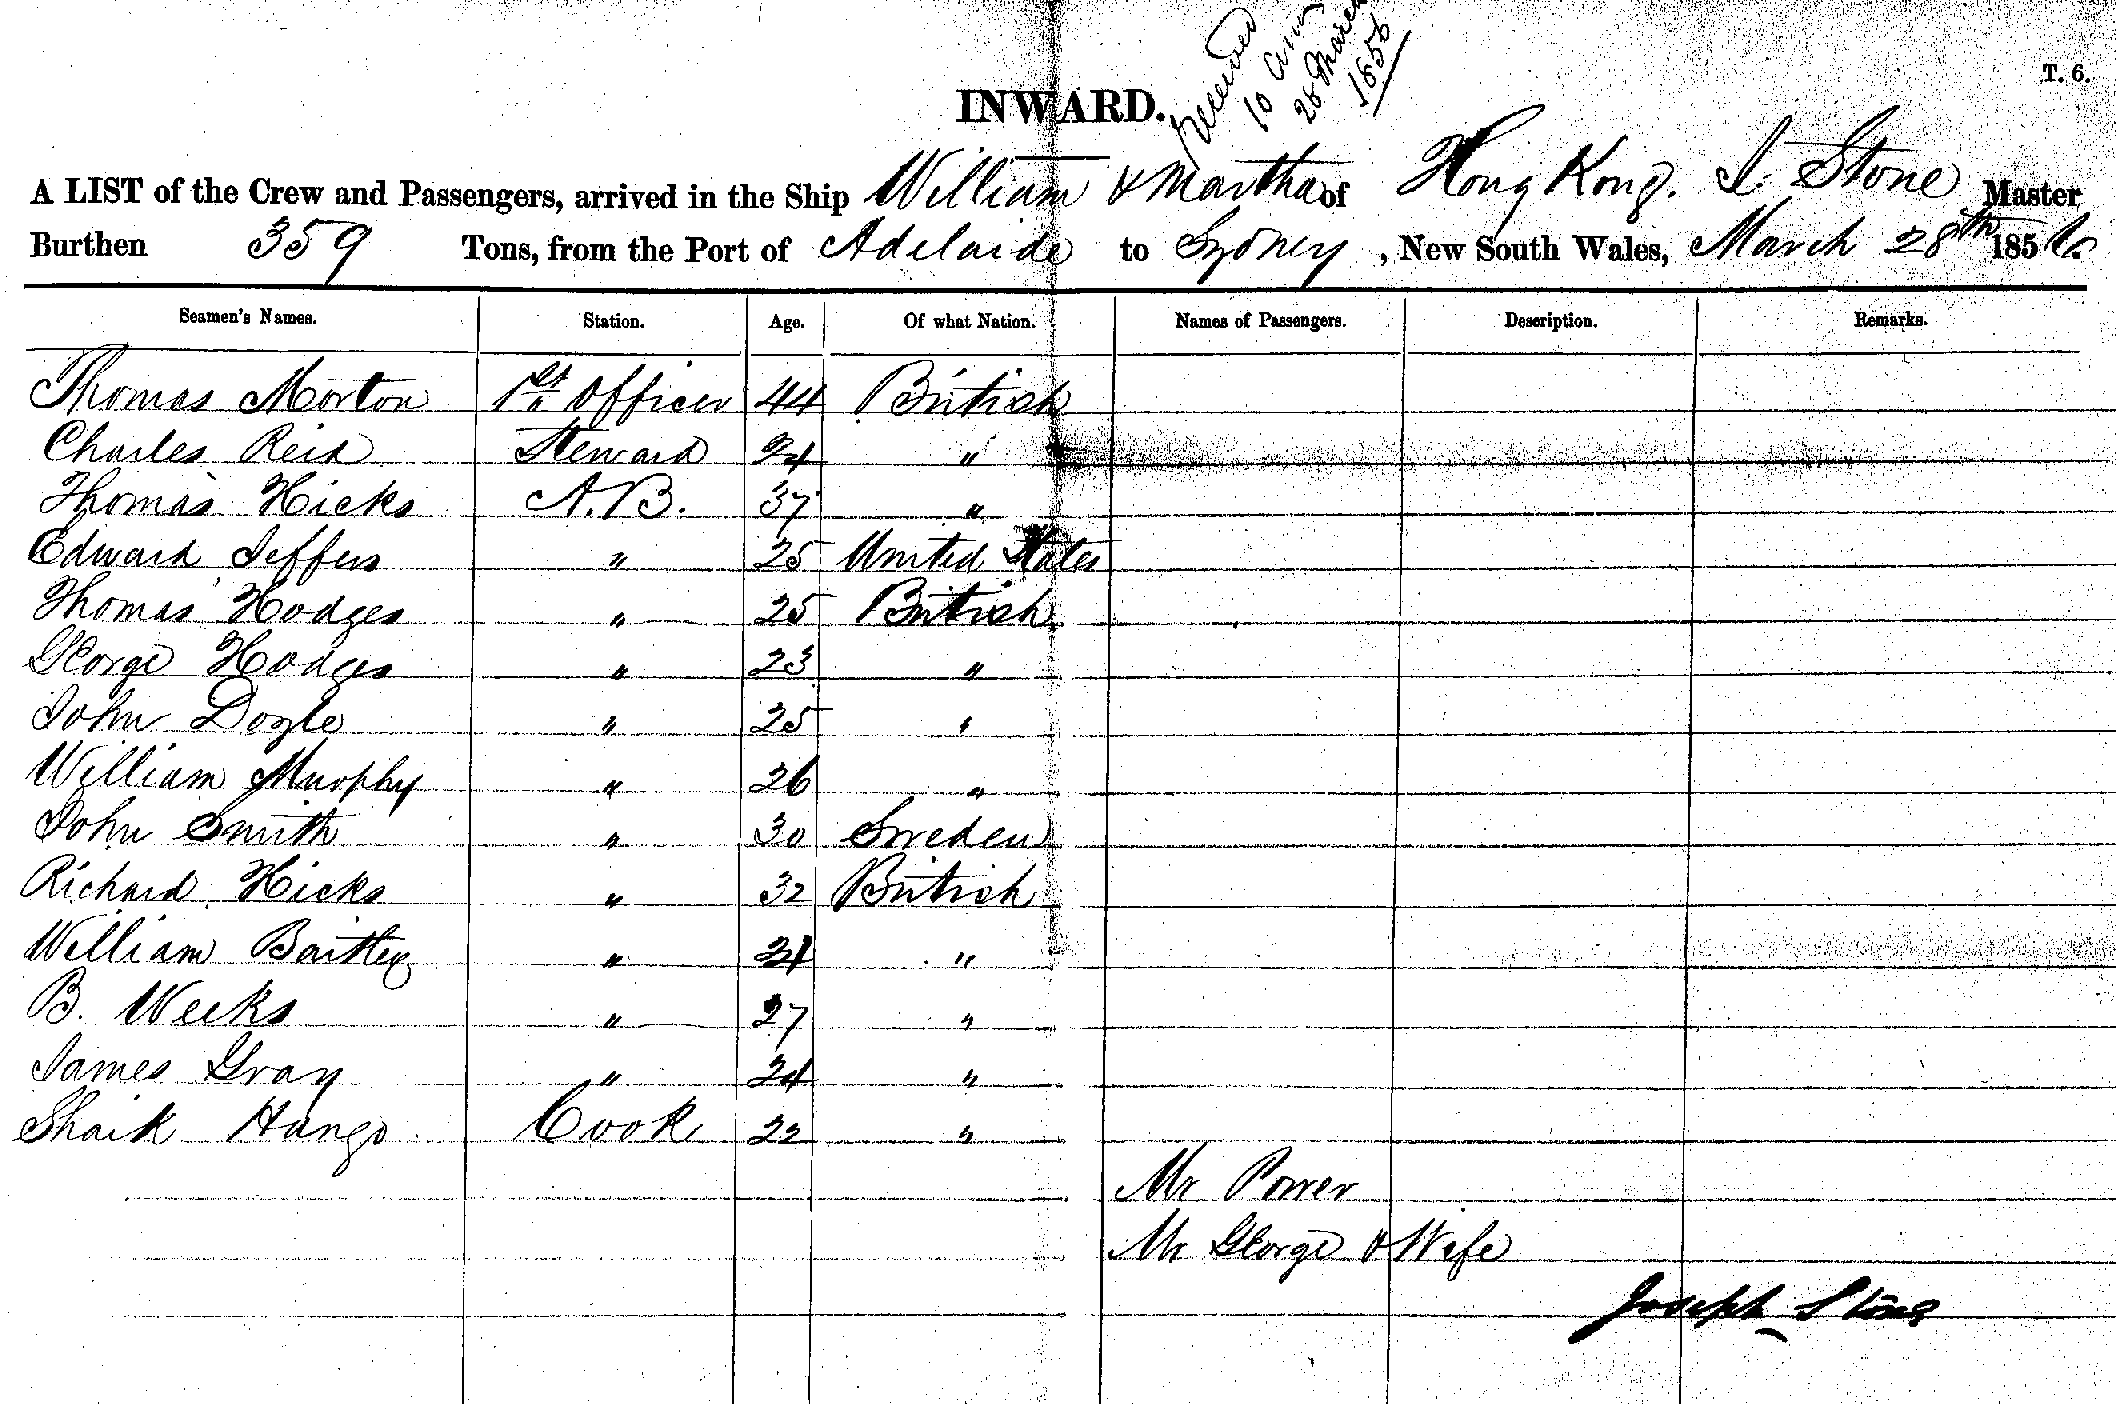 Received
10 am
28 March
1856
T. 6.
INWARD.
A LIST of the Crew and Passengers, arrived in the Ship William & Martha of Hong Kong. J Stone Master
Burthen 359 Tons, from the Port of Adelaide to Sydney, New South Wales, March 28th 1856.
Seamen's Names. Station. Age. Of what Nation. Names of Passengers. Description. Remarks.
Thomas Morton 1st Officer 44 British
Charles Reid Steward 24 "
Thomas Hicks A.B. 37 "
Edward Jeffers " 25 United States
Thomas Hodges " 25 British
George Hodges " 23 "
John Doyle " 25 "
William Murphy " 26 "
John Smith " 30 Sweden
Richard Hicks " 32 British
William " "
B. Weeks " 27 "
James Gray " 24 "
Shaik Cook 22 "
Mr Power
Mr George & Wife
Joseph Stone